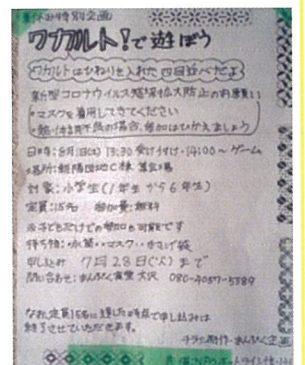 夏休み特別企画
ワナゲルト!で遊ぼう
はひねりを入れた四目並べだよ
新型コロナウイルス感染拡大防止のお願い
・マスクを着用してきてください
・熱、体調不良の場合、参加はひかえましょう
日時:8月1日(土) 13:30受け付け・14:00〜ゲーム
場所:朝陽団地C棟 集会場
対象:小学生(1年生から6年生)
定員:15名 参加費:無料
※子どもだけでの参加も可能です
持ち物:水筒・マスク・
申し込み 7月28日(火)まで
問い合わせ:まんぷく食堂 大沢
なお、定員15名に達した時点で申し込みは
終了させていただきます。
チラシ制作・まんぷく企画